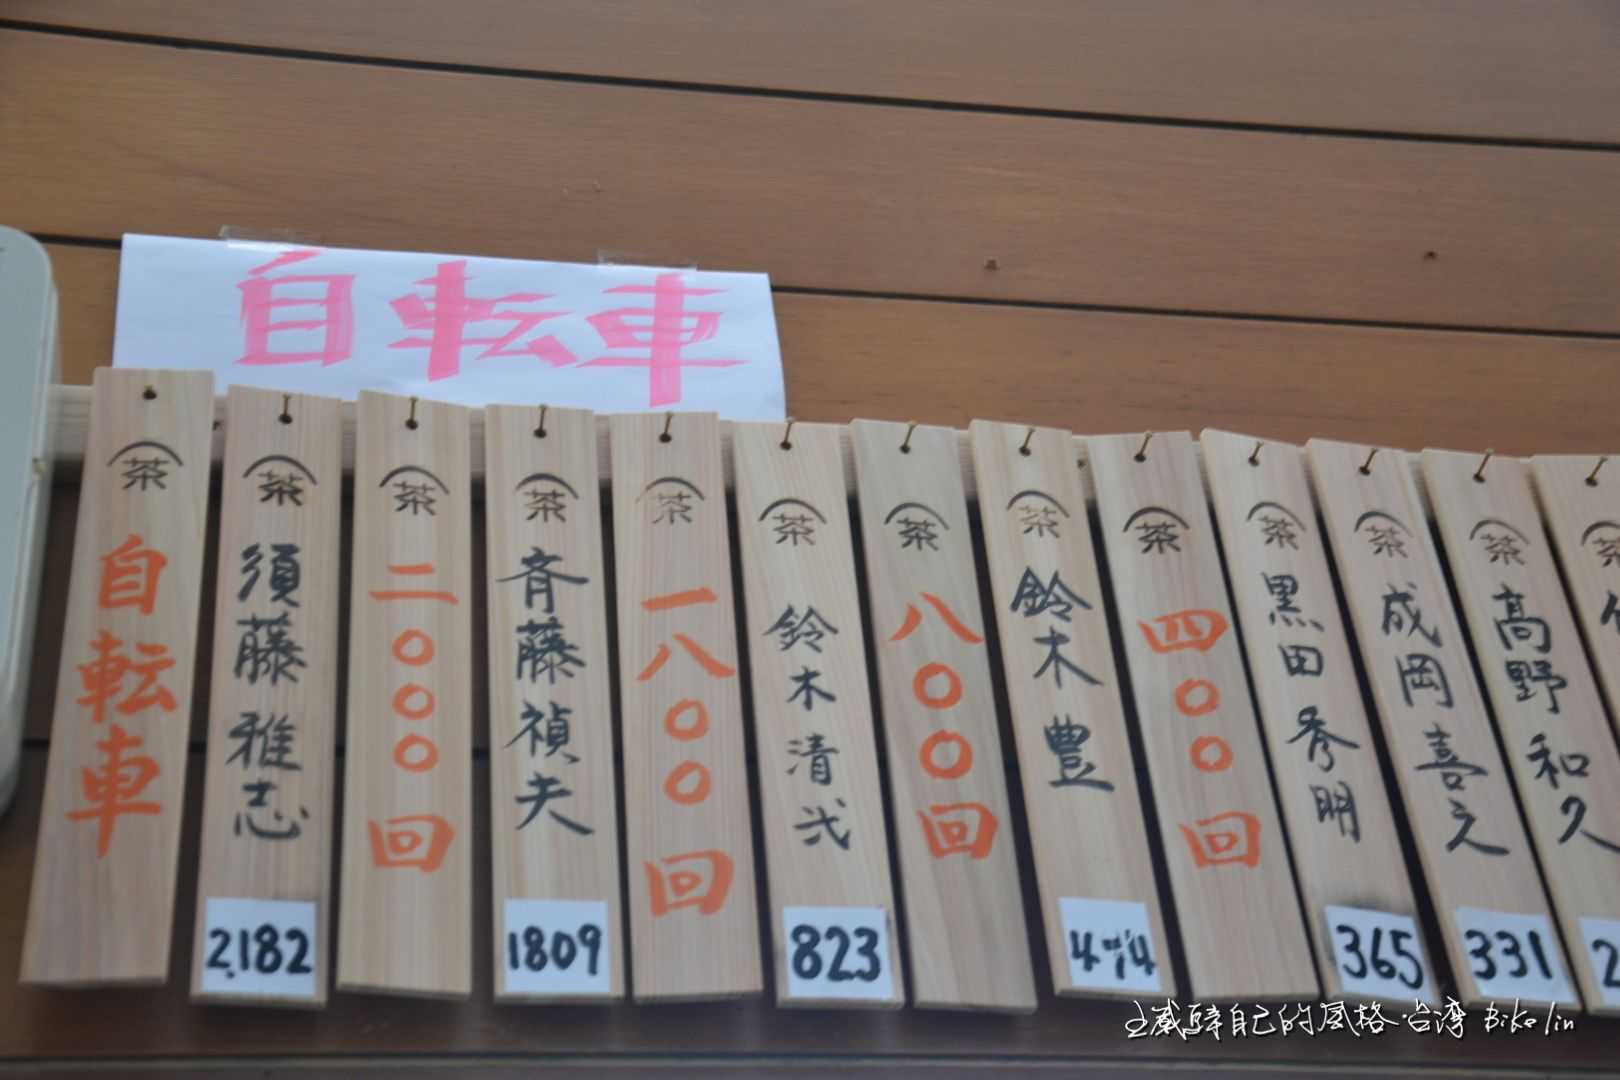 自転車
茶
自転車
茶
須藤 雅志
2,182
茶
二〇〇〇回
茶
斉藤禎夫
1809
茶
一八〇〇回
茶
鈴木清弐
823
茶
八〇〇回
茶
鈴木 豊
茶
四〇〇回
茶
黒田 秀明
365
茶
成岡喜之
331
茶
高野和久
自己的風格.台湾 Biko lin